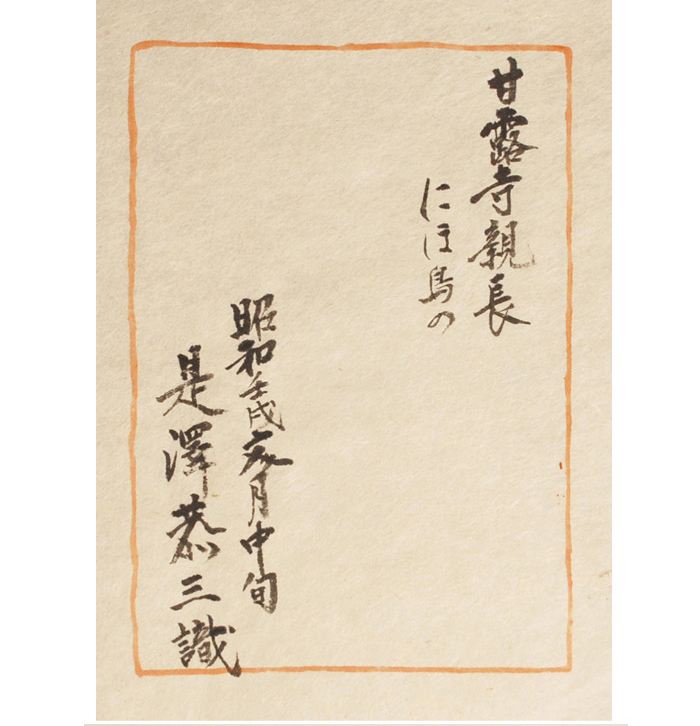 甘露寺親長
にほ鳥の
昭和壬戌亥月中旬
是澤恭三識